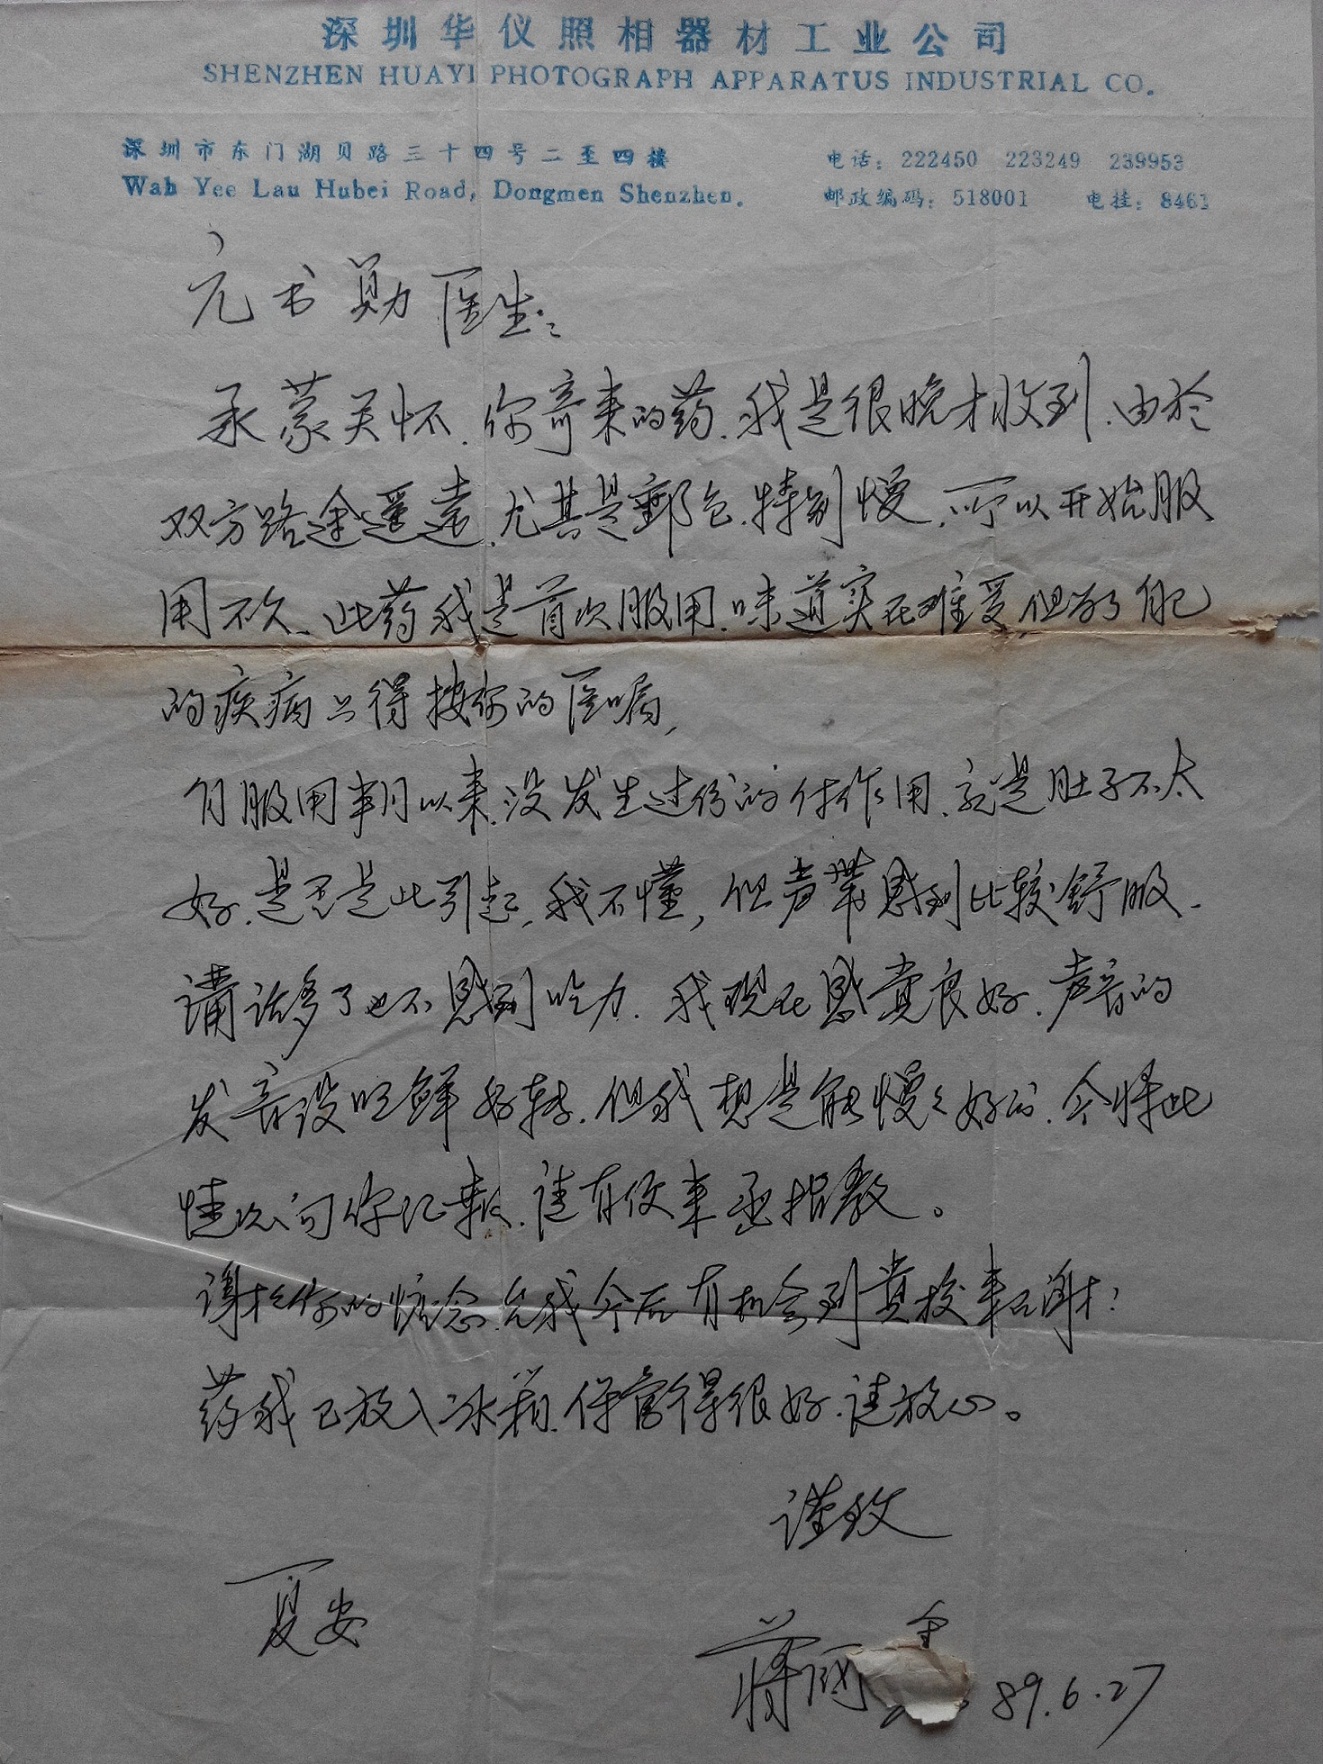 深圳华仪照相器材工业公司
SHENZHEN HUAYI PHOTOGRAPH APPARATUS INDUSTRIAL CO.
深圳市东门湖贝路三十四号二至四楼
电话：222450 223249 239953
Wah Yee Lau Hubei Road, Dongmen Shenzhen.
邮政编码：518001 电挂：8461
元书勋医生：
承蒙关怀.你寄来的药.我是很晚才收到.由於
双方路途遥远.尤其是郵包.特别慢.所以开始服
用不久.此药我是首次服用.味道实在难受但为了自己
的疾病只得按你的医嘱,
自服用半月以来.没发生过份的付作用.就是肚子不太
好.是否是此引起,我不懂,但声带感到比较舒服.
講话多了也不感到吃力.我现在感觉良好.声音的
发音没明鲜好转.但我想是能慢々好的.今将此
情况向你汇报.请有便来函指教。
谢谢你的惦念.允我今后有机会到贵校来致谢!
药我已放入冰箱.保管得很好.请放心。
谨致
夏安
蒋 89.6.27